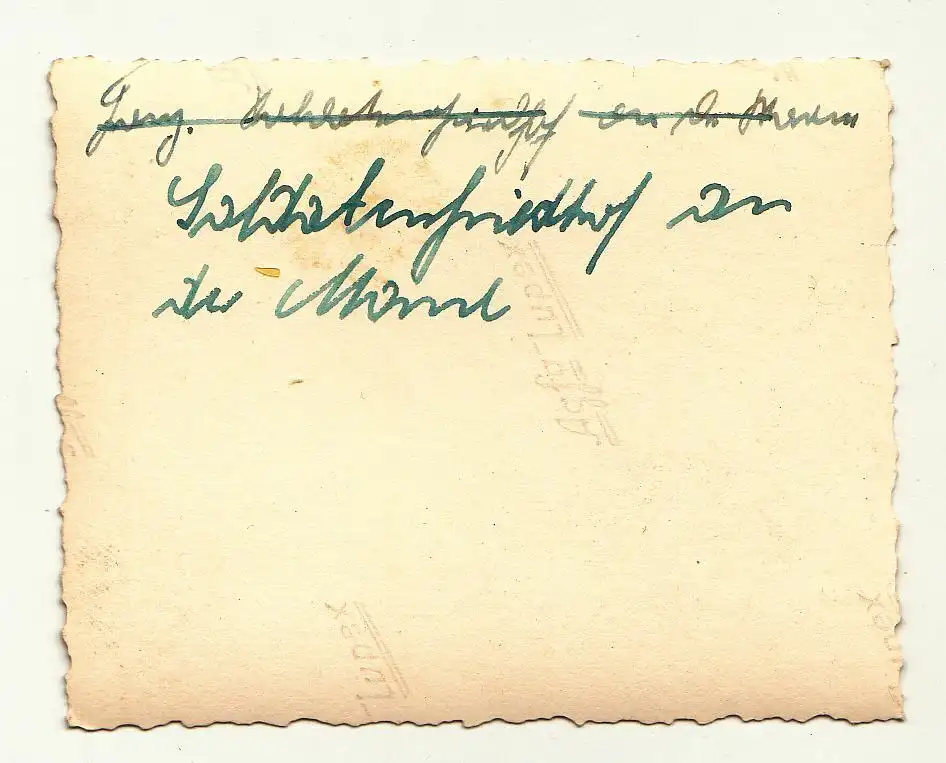 Franz. Soldatenfriedhof an der Marne
Soldatenfriedhof an
der Marne
Agfa-Lupex
-Lupex